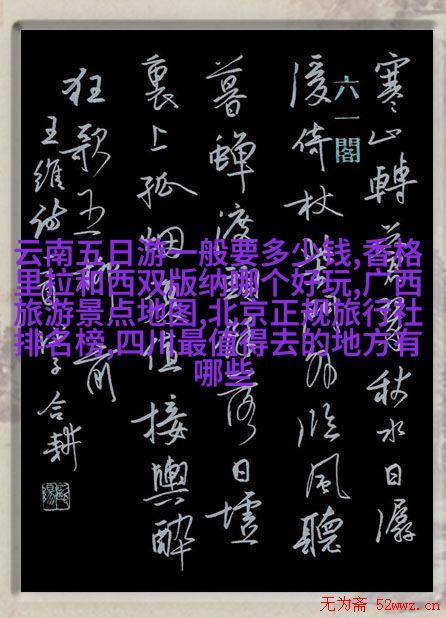 寒山轉蒼翠秋水日潺
湲倚杖柴門外临風聽
暮蟬渡頭餘落日墟
裏上孤烟復值接輿醉
狂歌五柳前
王維詩
合耕
六一閣
云南五日游一般要多少钱,香格
里拉和西双版纳哪个好玩,广西
旅游景点地图,北京正规旅行社
排名榜,四川最值得去的地方有
哪些
无为斋 52wwz.cn